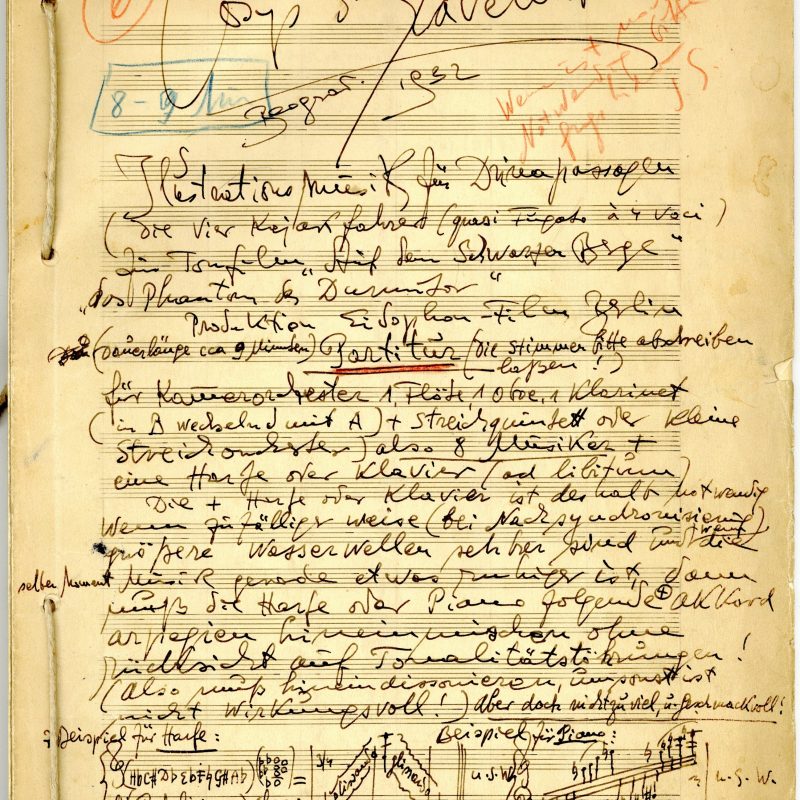 Josip Slavenski
8-9 Uhr
Beograd 1932
Wenn ist
Notwendig
J. S.
Illustrations Musik für Drinapassagen
(die vier Kajakfahrer (quasi Fugato à 4 Voci)
für Tonfilm „Auf dem Schwarzen Berge"
„das Phantom des Durmitor"
Produktion Eidophon-Film Berlin
(Dauerlänge cca 9 Minuten) Partitur (die Stimmen bitte abschreiben
laßen!)
für Kamerorchester 1 Flöte 1 Oboe, 1 Klarinet
(in B wechselnd mit A) + Streichquintett oder kleine
Streichorchester) also 8 Musiker +
eine Harfe oder Klavier (ad libitum)
Die + Harfe oder Klavier ist deshalb notwendig
wenn zufälliger weise (bei Nachsyndronisierung)
größere Wasserwellen sehber sind und wenn die
selben Moment Musik gerade etwas ruhiger ist, dann
muß die Harfe oder Piano folgende + Akkord
arpegien hineinmischen ohne
rücksicht auf Tonalitätstöhrungen!
(also muß hineindissonieren, umsonst ist
nicht wirkungsvoll!) Aber doch nicht zu viel, u. geschmackvoll!
+ Beispiel für Harfe: Beispiel für Piano:
(HbC#DbEb♮G#Ab) = 3/4 glissando glissando u.s.w. u.s.w.